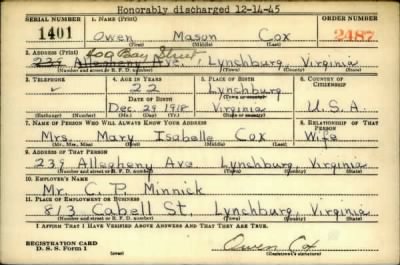 Honorably discharged 12-14-45
SERIAL NUMBER 1. NAME (Print) ORDER NUMBER
1401 Owen Mason Cox 2487
(First) (Middle) (Last)
2. ADDRESS (Print) 400 Bay Street
239 Allegheny Ave., Lynchburg, Virginia
(Number and street or R. F. D. number) (Town) (County) (State)
3. TELEPHONE 4. AGE IN YEARS 5. PLACE OF BIRTH 6. COUNTRY OF CITIZENSHIP
22 Lynchburg
DATE OF BIRTH (Town or county)
Dec. 29 1918 Virginia U.S.A.
(Mo.) (Day) (Yr.) (State or country)
7. NAME OF PERSON WHO WILL ALWAYS KNOW YOUR ADDRESS 8. RELATIONSHIP OF THAT PERSON
Mrs. Mary Isabelle Cox Wife
(Mr., Mrs., Miss) (First) (Middle) (Last)
9. ADDRESS OF THAT PERSON
239 Allegheny Ave. Lynchburg, Virginia
(Number and street or R. F. D. number) (Town) (County) (State)
10. EMPLOYER'S NAME
Mr. C. P. Minnick
11. PLACE OF EMPLOYMENT OR BUSINESS
813 Cabell St. Lynchburg, Virginia
(Number and street or R. F. D. number) (Town) (County) (State)
I AFFIRM THAT I HAVE VERIFIED ABOVE ANSWERS AND THAT THEY ARE TRUE.
REGISTRATION CARD
D. S. S. Form 1 (over) Owen Cox
(Registrant's signature)